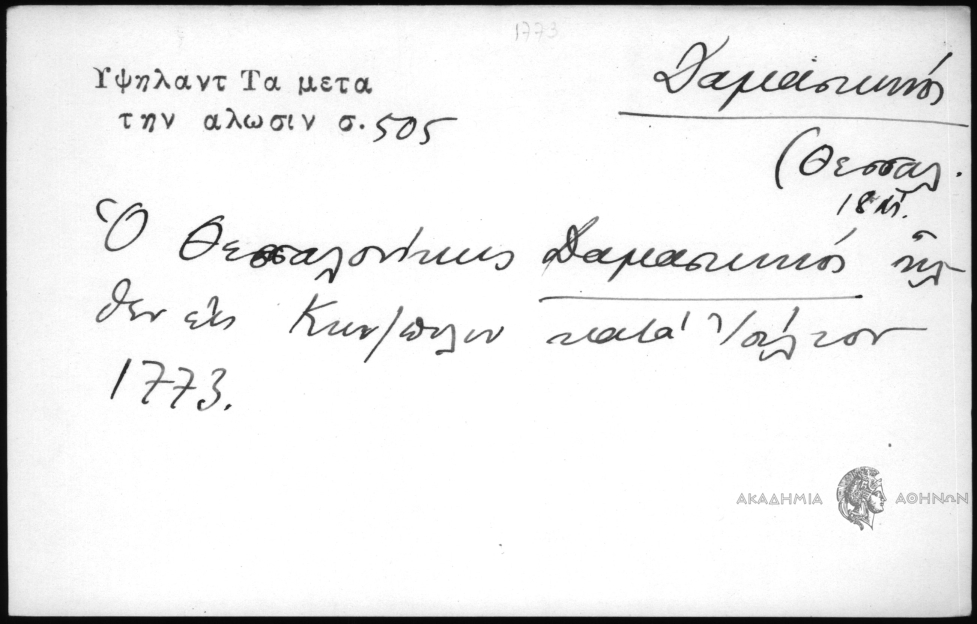 1773
Υψηλαντ Τα μετα
την αλωσιν σ. 505
Δαμασκηνός
(Θεσσαλ.
18 αἰ.
Ὁ Θεσσαλονίκης Δαμασκηνός ἦλ
θεν εἰς Κων/πολιν κατά τόν
1773.
ΑΚΑΔΗΜΙΑ ΑΘΗΝΩΝ